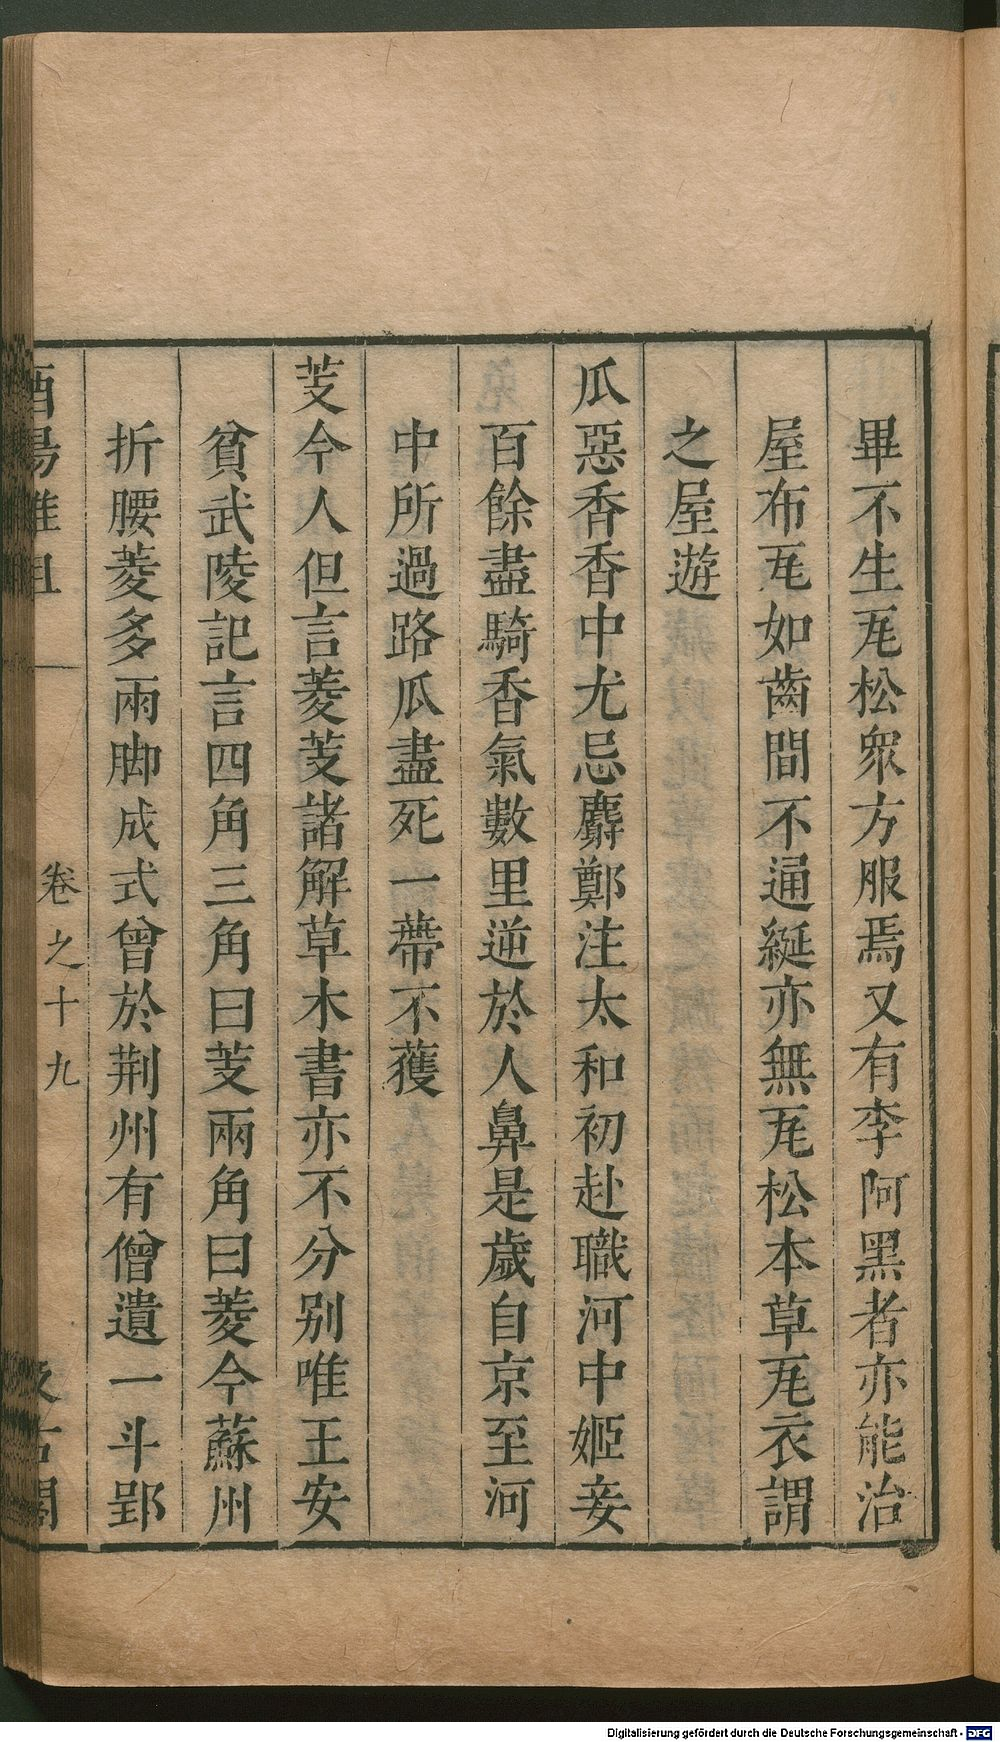 畢不生瓦松衆方服焉又有李阿黑者亦能治
屋布瓦如齒間不通綖亦無瓦松本草瓦衣謂
之屋遊
瓜惡香香中尤忌麝鄭注太和初赴職河中姬妾
百餘盡騎香氣數里逆於人鼻是歲自京至河
中所過路瓜盡死一蔕不獲
芰今人但言菱芰諸解草木書亦不分別唯王安
貧武陵記言四角三角曰芰兩角曰菱今蘇州
折腰菱多兩脚成式曾於荆州有僧遺一斗郢
酉陽雜俎 卷之十九 汲古閣
Digitalisierung gefördert durch die Deutsche Forschungsgemeinschaft - DFG